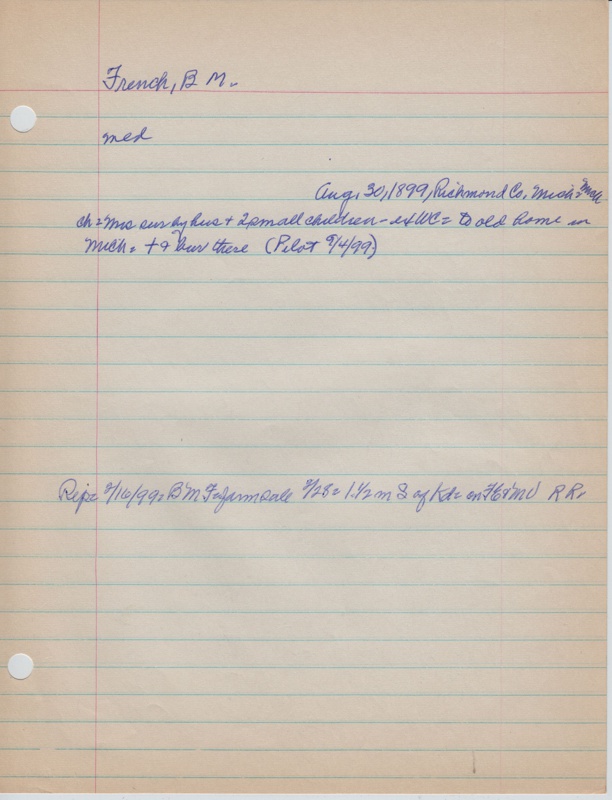 French, B M.
med
Aug, 30, 1899, Richmond Co, Mich =
ch = Mrs sur by hus + 2 small children - = to old home in
Mich. + bur there (Pilot 9/4/99)
Rep = 9/16/99 = B M F = farm sale 9/28 = 1 1/2 m S of = on R R.